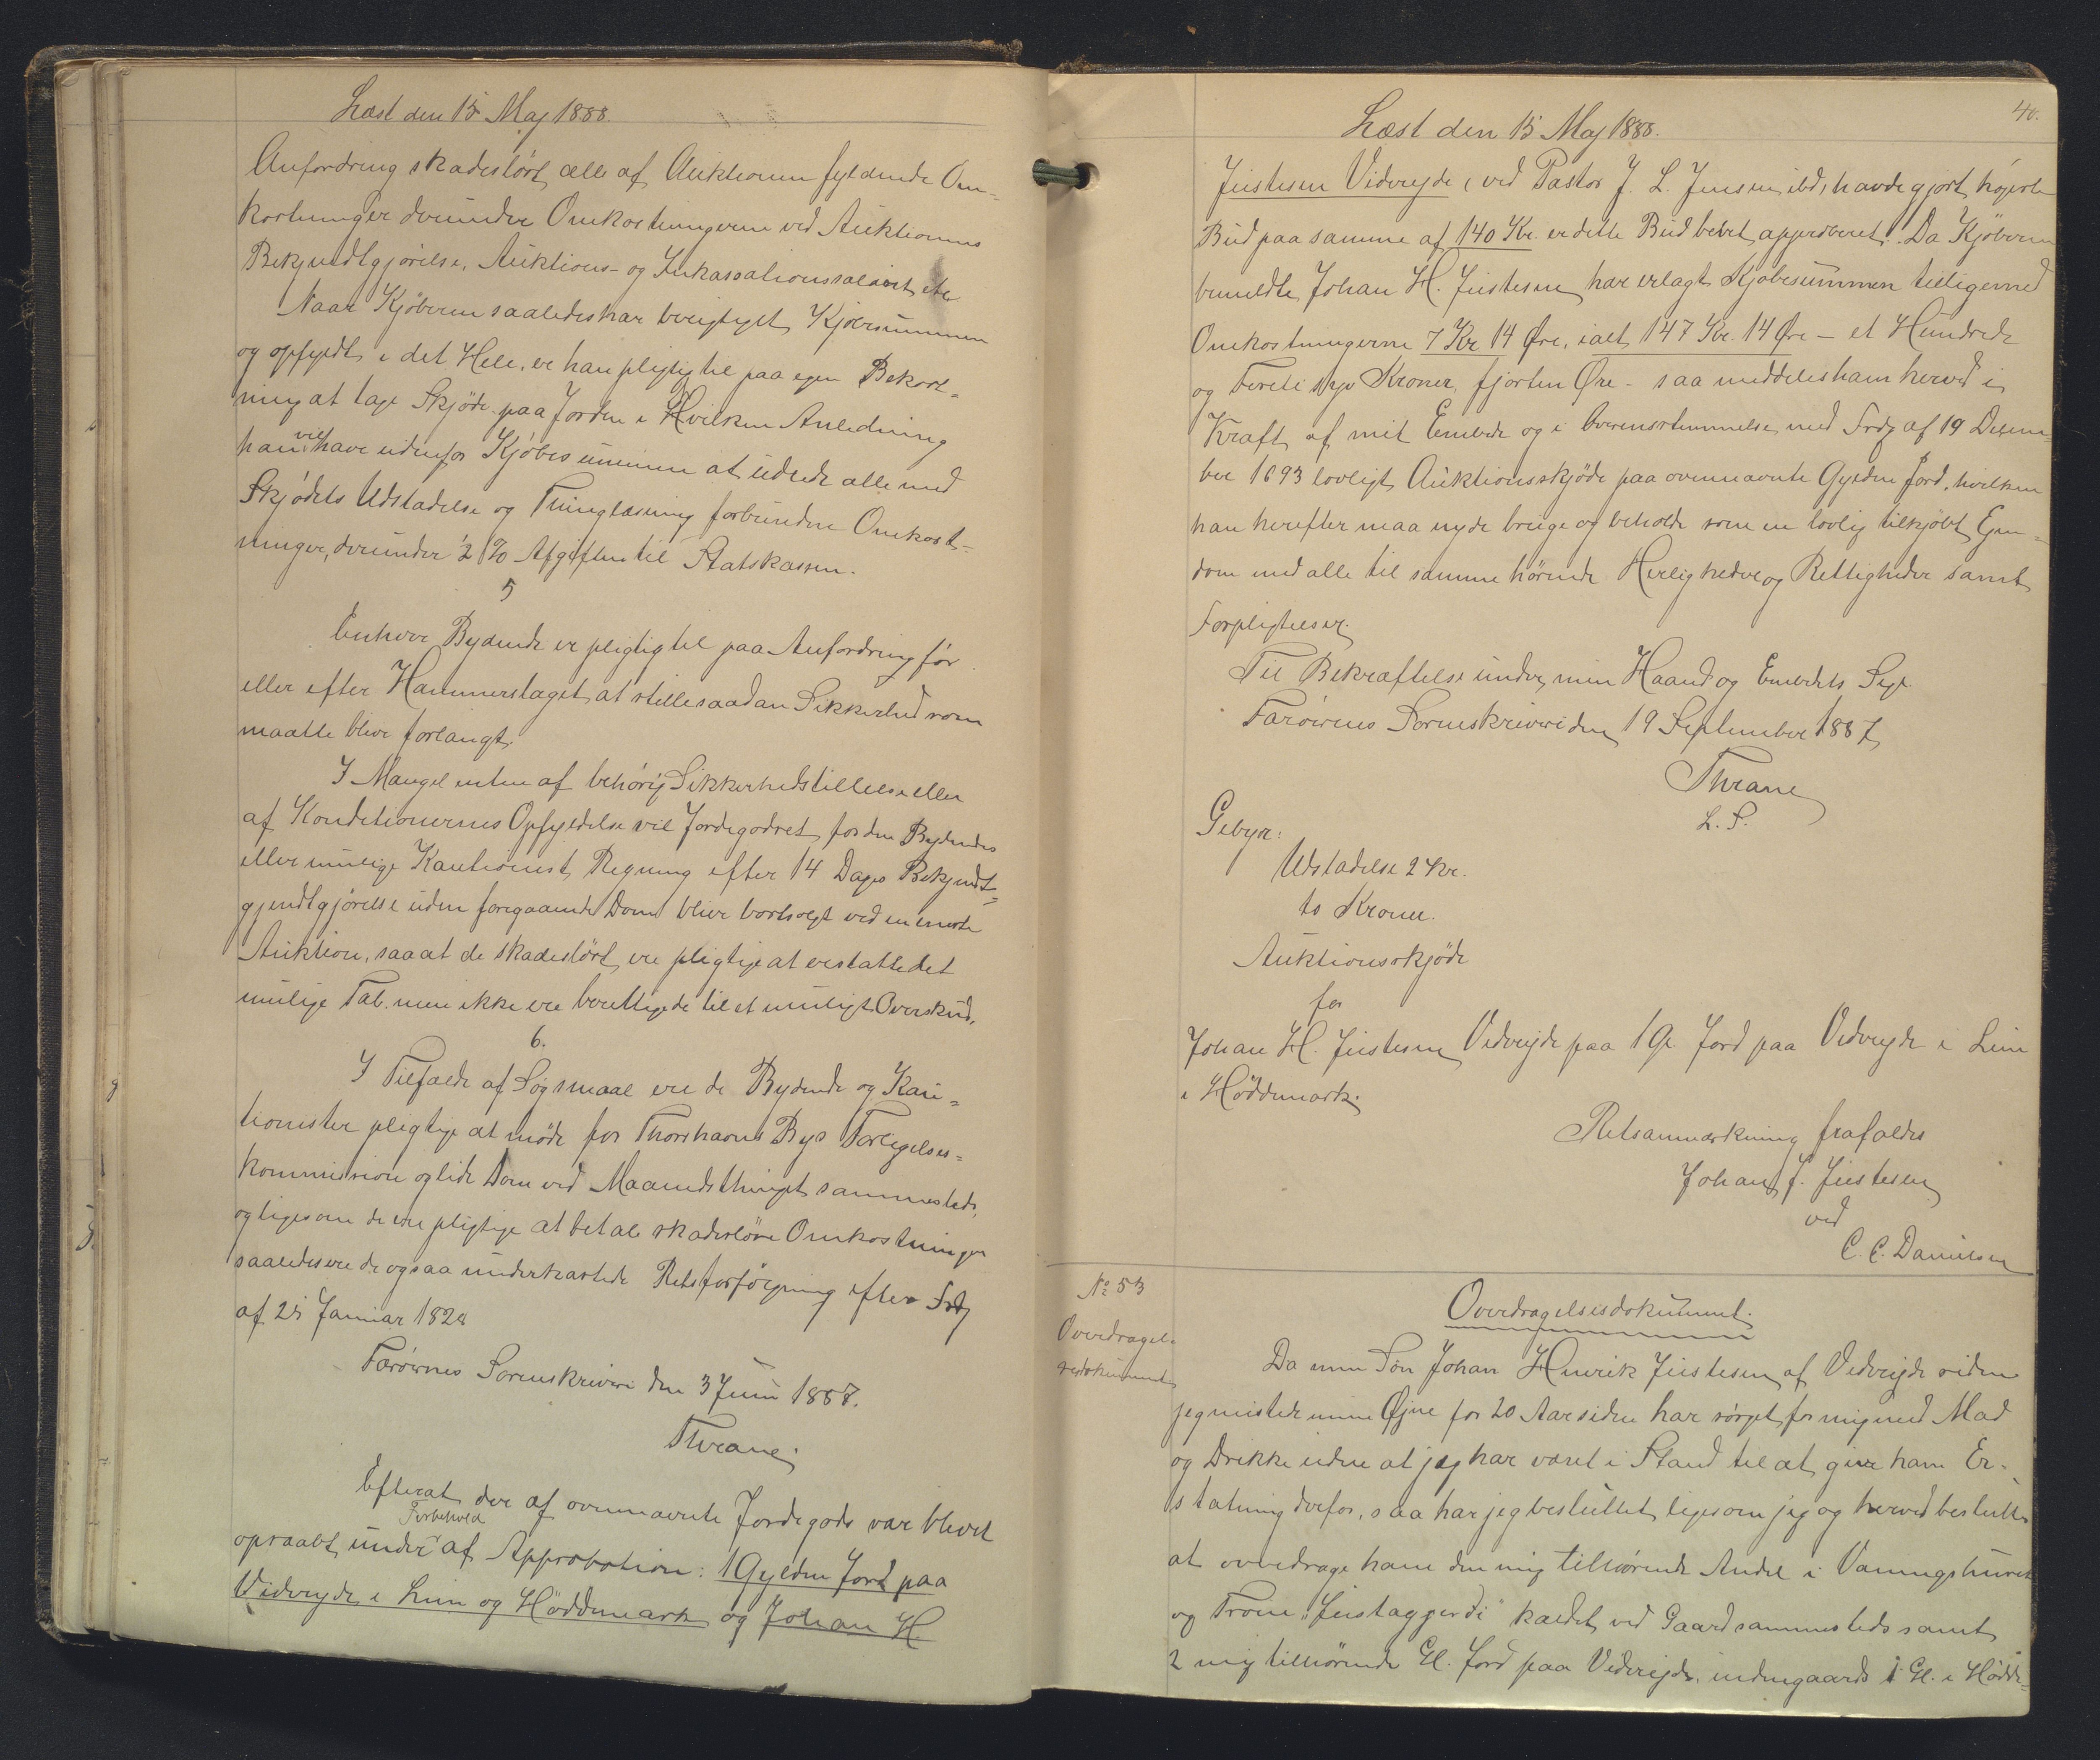 Læst den 15 Maj 1888.
Anfordring skadesløst alle af Auktionen flydende Om-
kostninger derunder Omkostningerne ved Auktionens
Bekjendtgjörelse, Auktions- og Inkassationssalairet etc
Naar Kjöberen saaledes har berigtiget Kjöbesummen
og opfyldt i det Hele, er han pligtig til paa egen Bekost-
ning at tage Skjöde paa Jorden i Hvilken Anledning
han vil have udenfor Kjöbesummen at udrede alle med
Skjödets Udstædelse og Thinglæsning forbundne Omkost-
ninger, derunder ½ % Afgiften til Statskassen.
5
Enhver Bydende er pligtig til paa Anfordring för
eller efter Hammerslaget at stille saadan Sikkerhed som
maatte blive forlangt.
I Mangel enten af behörig Sikkerhedstillelse eller
af Konditionernes Opfyldelse vil Jordegodset for den Bydendes
eller mulige Kautionist Regning efter 14 Dages Bekjendt-
gjendtgjörelse uden foregaaende Dom blive bortsolgt ved en eneste
Auktion, saa at de skadeslöst ere pligtige at erstatte det
mulige Tab. men ikke ere berettigede til et muligt Overskud.
6.
I Tilfælde af Søgsmaal ere de Bydende og Kau-
tionister pligtige at møde for Thorshavns Bys Forligelses-
kommission og lide Dom ved Maanedsthinget sammesteds,
og ligesom de ere pligtige at betale skadesløse Omkostninger
saaledes ere de ogsaa underkastede Retsforfölgning efter Frdg
af 25 Januar 1828
Færøernes Sorenskriveri den 3 Juni 1887.
Thrane.
Efterat der af ovennævnte Jordegods var blevet
opraabt under Forbehold af Approbation: 1 Gylden Jord paa
Viderejde i Lim og Höddemark og Johan H.
40.
Læst den 15 Maj 1888.
Justesen Viderejde (ved Pastor J. L. Jensen ibd, havde gjort højeste
Bud paa samme af 140 Kr. er dette Bud bevet approberet. Da Kjöberen
bemeldte Johan H. Justesen har erlagt Kjöbesummen tilligemed
Omkostningerne 7 Kr 14 Øre, ialt 147 Kr. 14 Øre – et Hundrede
og Fyreti syv Kroner, fjorten Øre – saa meddeles ham herved i
Kraft af mit Embede og i Overensstemmelse med Frdg af 19 Decem-
ber 1693 lovligt Auktionsskjöde paa ovennævnte Gylden Jord, hvilken
han herefter maa nyde bruge og beholde som en lovlig tilkjöbt Ejen-
dom med alle til samme hörende Herligheder og Rettigheder samt
Forpligtelser.
Til Bekræftelse under min Haand og Embedets Segl.
Færøernes Sorenskriveri den 19 September 1887
Thrane
L. S.
Gebyr:
Udstædelse 2 Kr.
to Kroner.
Auktionsskjöde
for
Johan H. Justesen Viderejde paa 1 Gl. Jord paa Viderejde i Lim
i Höddemark.
Retsanmærkning frafaldes
Johan J. Justesen
ved
C. C. Danielsen
No 53
Overdragel-
sesdokument
Overdragelsesdokument.
Da min Søn Johan Henrik Justesen af Viderejde siden
jeg mistede mine Øjne for 20 Aar siden har sörget for mig med Mad
og Drikke uden at jeg har været i Stand til at give ham Er-
statning derfor, saa har jeg besluttet, ligesom jeg og herved beslutter
at overdrage ham den mig tilhörende Andel i Vaaningshuset
og Trøne "Justaggerdi" kaldet ved Gaard sammesteds samt
2 mig tilhörende Gl. Jord paa Viderejde, indengaards 1 Gl. i Hödde-